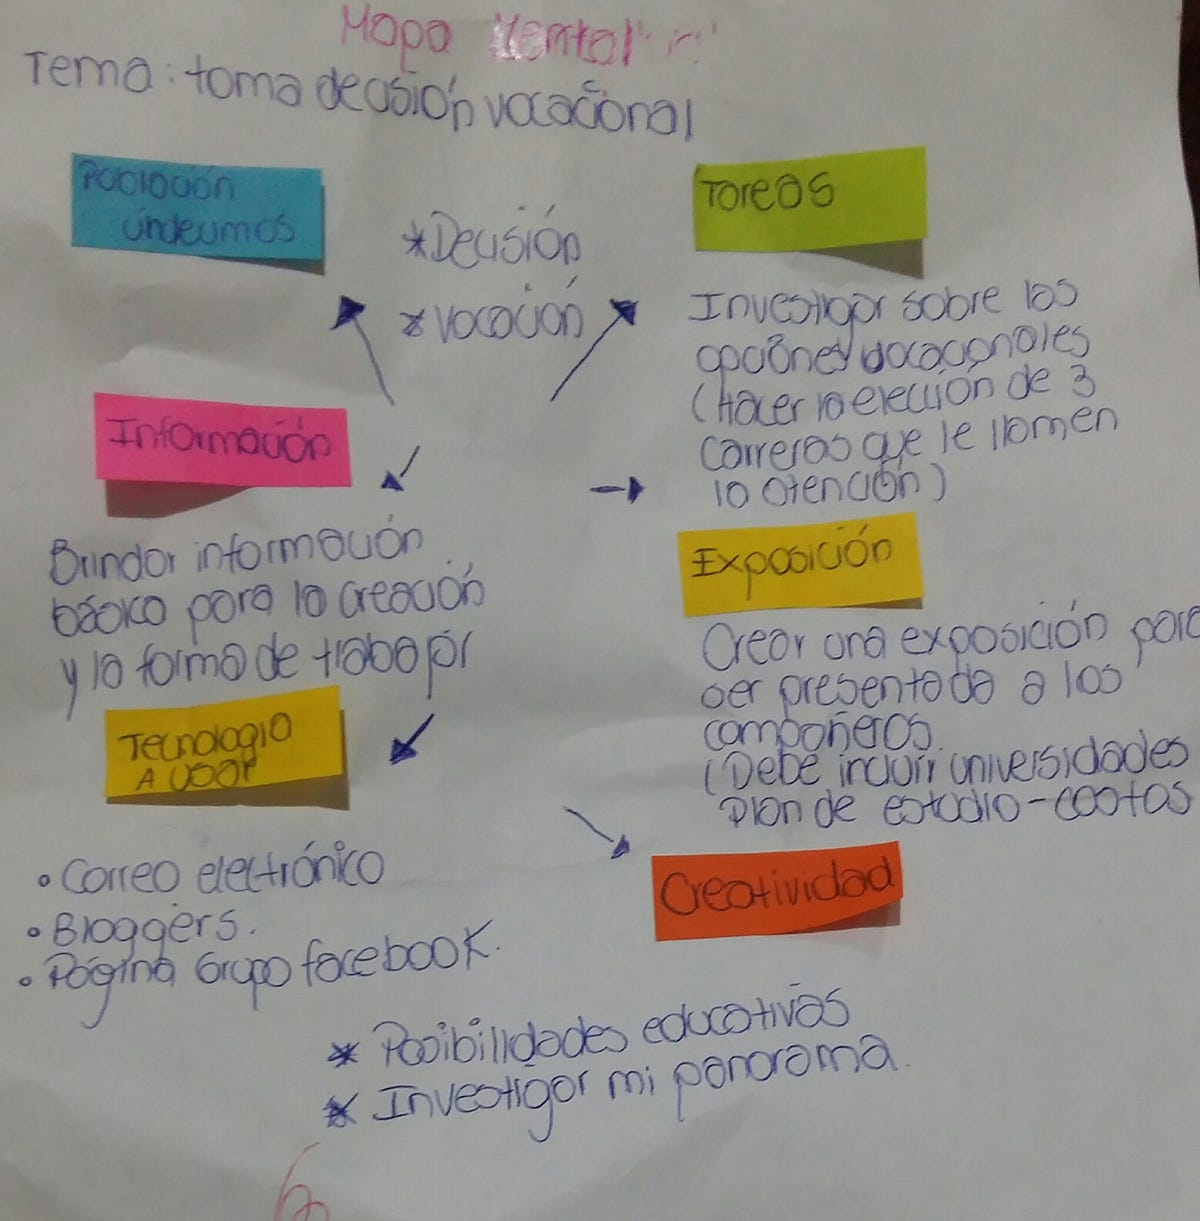 Mapa Mental
Tema: toma decisión vocacional
Población
úndeumos
* Decisión
* Vocación
Información
Brindar información
básica para la creación
y la forma de trabajar
Tecnologia
A usar
• Correo electrónico
• Bloggers.
• Página Grupo facebook.
Tareas
Investigar sobre las
opciones vocacionales
(Hacer la elección de 3
carreras que le llamen
la atención)
Exposición
Crear una exposición para
ser presentada a los
compañeros.
(Debe incluir universidades
Plan de estudio-costos
Creatividad
* Posibilidades educativas
* Investigar mi panorama.